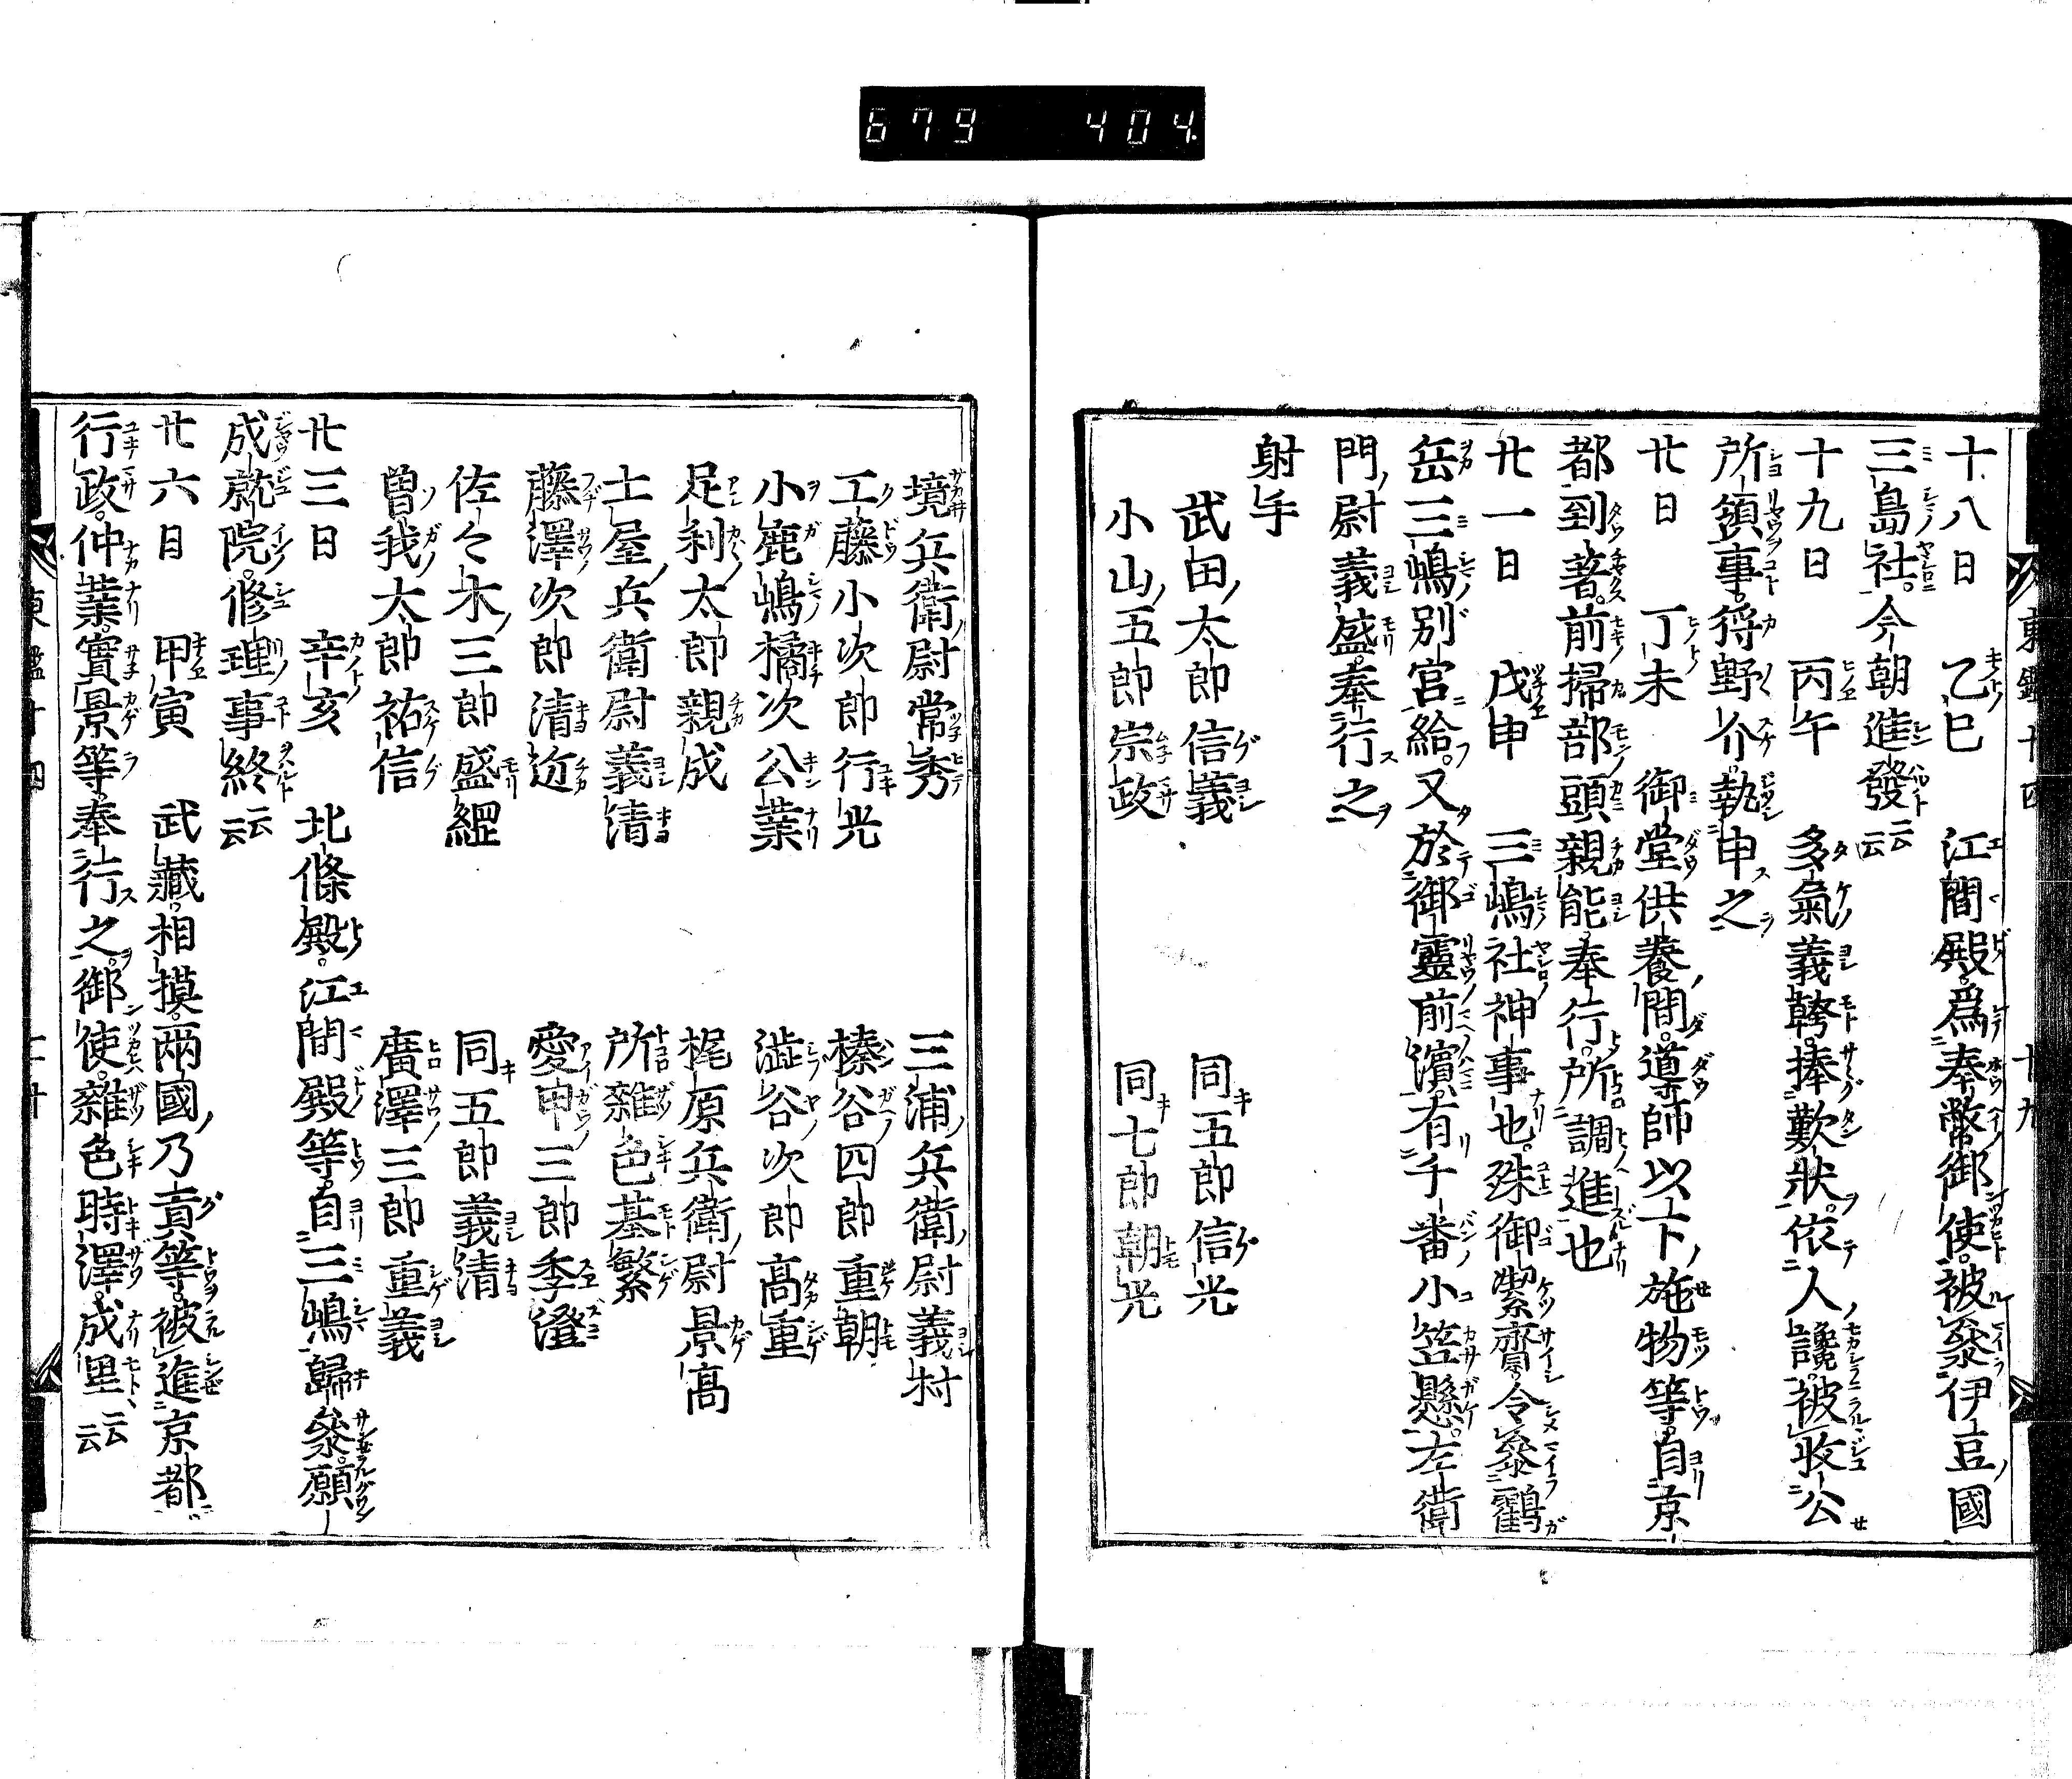 679 404.
東鑑十四 十九
十八日 乙巳 江間殿。爲奉幣御使。被參伊豆國
三島社。今朝進發云云
十九日 丙午 多氣義幹。捧歎状。依人讒。被收公
所領事。狩野介。執申之
廿日 丁未 御堂供養間。導師以下施物等。自京
都到著。前掃部頭親能。奉行。所調進也
廿一日 戊申 三嶋社神事也。殊御潔齋。令參鶴
岳三嶋別宮給。又於御靈前濱。有千番小笠懸。左衛
門尉義盛。奉行之
射手
武田太郎信義 同五郎信光
小山五郎宗政 同七郎朝光
境兵衛尉常秀 三浦兵衛尉義村
工藤小次郎行光 榛谷四郎重朝
小鹿嶋橘次公業 澁谷次郎高重
足利太郎親成 梶原兵衛尉景高
土屋兵衛尉義清 所雜色基繁
藤澤次郎清近 愛甲三郎季澄
佐々木三郎盛綱 同五郎義清
曽我太郎祐信 廣澤三郎重義
廿三日 辛亥 北條殿。江間殿等。自三嶋歸參。願
成就院。修理事終云云
廿六日 甲寅 武藏。相摸。兩國乃貢等。被進京都
行政。仲業。實景等。奉行之。御使。雜色時澤。成里云云